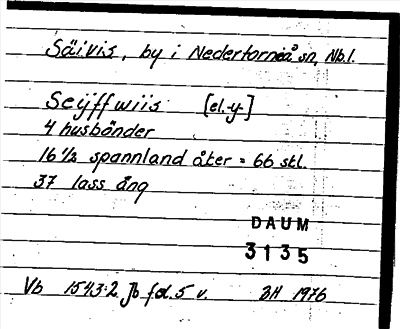 Säivis, by i Nedertorneå sn, Nb.l.
Seÿffwiis [el. -y-]
4 husbönder
16½ spannland åker = 66 skl.
37 lass äng
DAUM
3135
Vb 1543:2 Jb fol. 5 v. BH 1976